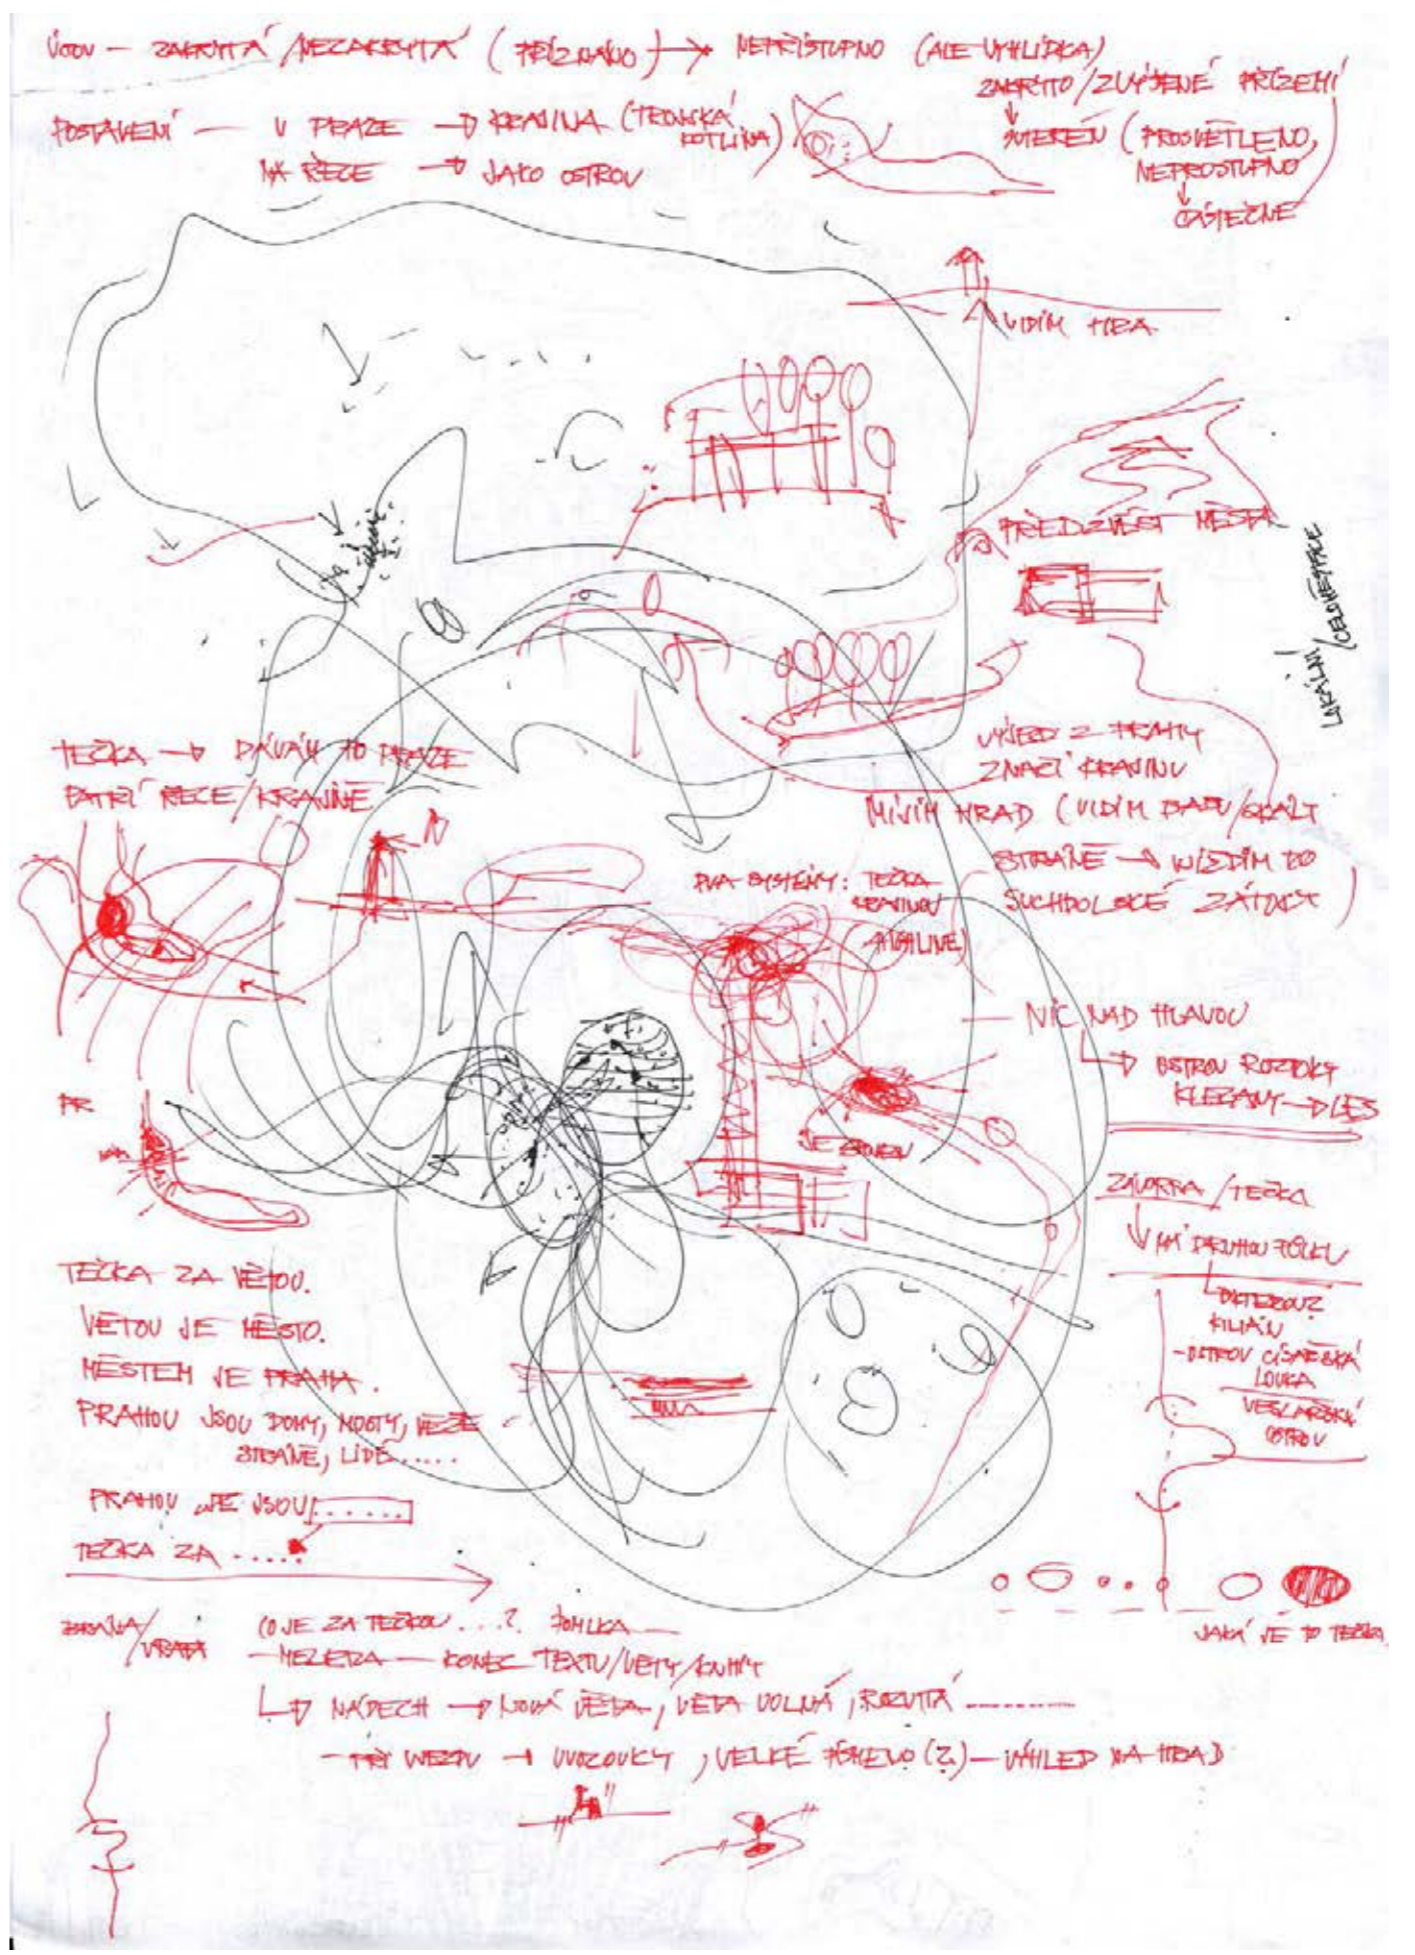 ZAKRYTÁ / NEZAKRYTÁ (PŘIZNÁNO) → NEPŘÍSTUPNO (ALE VYHLÍDKA)
ZAKRYTO / ZVÝŠENÉ PŘÍZEMÍ
SUTERÉN (PROSVĚTLENO,
NEPROSTUPNO
ČÁSTEČNĚ
POSTAVENÍ — V PRAZE → KRAJINA (TROJSKÁ
KOTLINA)
NA ŘECE → JAKO OSTROV
VIDÍM
PŘEDZVĚST MĚSTA
LOKÁLNÍ / CELOMĚSTSKÉ
TEČKA → DÁVÁM TO PRAZE
PATŘÍ ŘECE / KRAJINĚ
VÝJEZD Z PRAHY
ZNAČÍ KRAJINU
MÍJÍM HRAD (VIDÍM
STRÁNĚ → VJÍŽDÍM DO
SUCHDOLSKÉ
DVA SYSTÉMY: TEČKA
NIC NAD HLAVOU
→ OSTROV ROZTOKY
KLECANY → LES
PR
ZÁVORKA / TEČKA
MÁ DRUHOU PŮLKU
KILIÁN
- OSTROV CÍSAŘSKÁ
LOUKA
VESLAŘSKÝ
OSTROV
TEČKA ZA VĚTOU.
VĚTOU JE MĚSTO.
MĚSTEM JE PRAHA.
PRAHOU JSOU DOMY, MOSTY, VĚŽE
STRÁNĚ, LIDÉ.....
PRAHOU JE JSOU ......
TEČKA ZA .....
JAKÁ JE TO TEČKA
BRÁNA / VRATA
CO JE ZA TEČKOU ...? POMLKA —
— MEZERA — KONEC TEXTU / VĚTY / KNIHY
→ NÁDECH → NOVÁ VĚTA, VĚTA VOLNÁ, ROZVITÁ ..........
— PŘI VJEZDU → UVOZOVKY, VELKÉ PÍSMENO (?) — VÝHLED NA HRAD